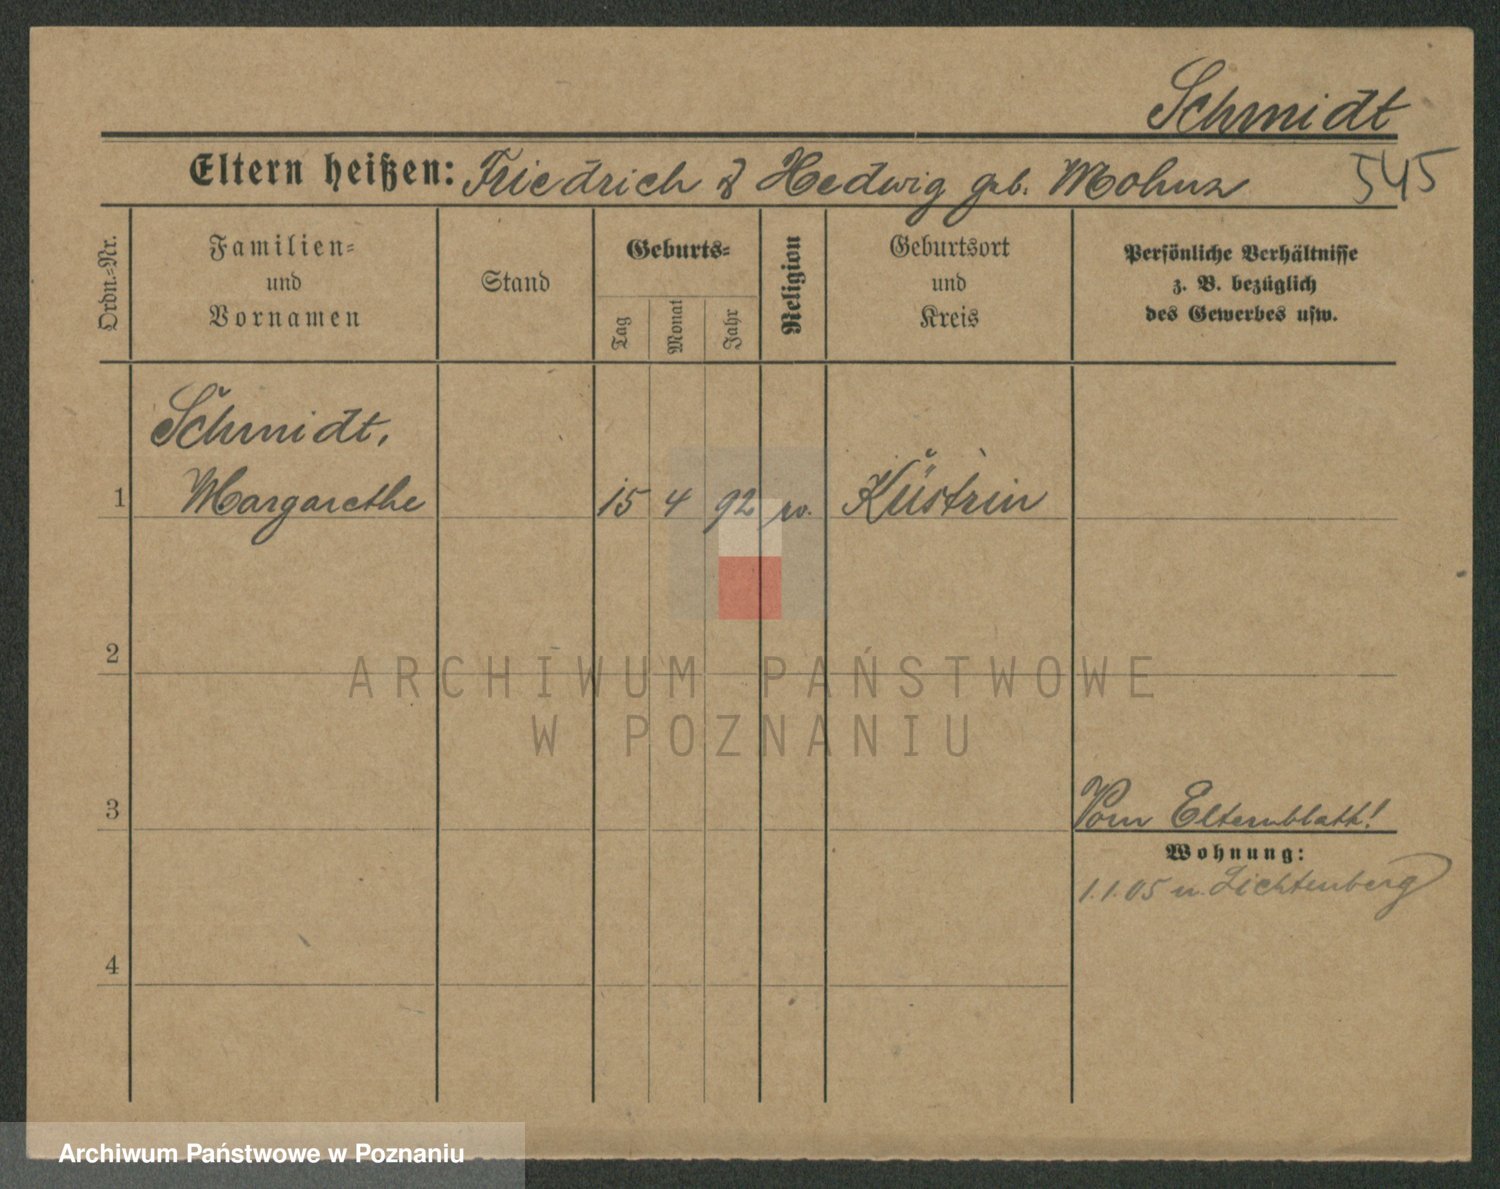 Schmidt
Eltern heißen: Friedrich & Hedwig geb.
545
Ordn.-Nr.
Familien-
und
Vornamen
Stand
Geburts-
Tag
Monat
Jahr
Religion
Geburtsort
und
Kreis
Persönliche Verhältnisse
z. B. bezüglich
des Gewerbes usw.
Schmidt,
1 Margarethe 15 4 92 Küstrin
2
ARCHIWUM PAŃSTWOWE
W POZNANIU
3
Vom Elternblatt!
Wohnung:
1.1.05 n. Lichtenberg
4
Archiwum Państwowe w Poznaniu